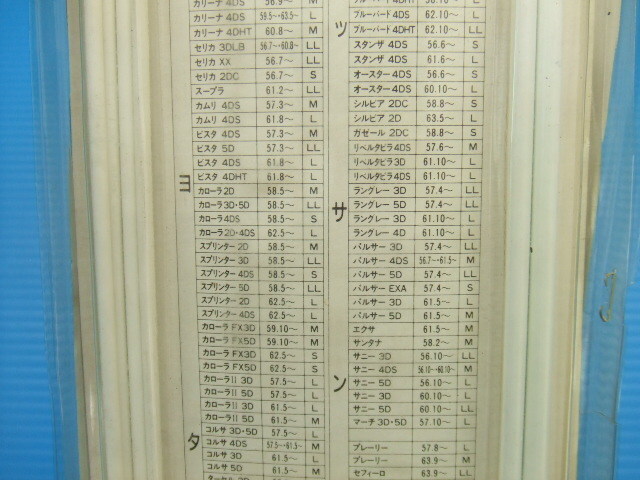 カリーナ 4DS 56.9〜 M
カリーナ 4DS 59.5〜・63.5〜 L
カリーナ 4DHT 60.8〜 M
セリカ 3DLB 56.7〜・60.8〜 LL
セリカ XX 56.7〜 LL
セリカ 2DC 56.7〜 S
スープラ 61.2〜 LL
カムリ 4DS 57.3〜 M
カムリ 4DS 61.8〜 L
ビスタ 4DS 57.3〜 M
ビスタ 5D 57.3〜 LL
ビスタ 4DS 61.8〜 L
ビスタ 4DHT 61.8〜 L
カローラ 2D 58.5〜 M
カローラ 3D・5D 58.5〜 LL
カローラ 4DS 58.5〜 S
カローラ 2D・4DS 62.5〜 L
スプリンター 2D 58.5〜 M
スプリンター 3D 58.5〜 LL
スプリンター 4DS 58.5〜 S
スプリンター 5D 58.5〜 LL
スプリンター 2D 62.5〜 L
スプリンター 4DS 62.5〜 L
カローラ FX3D 59.10〜 M
カローラ FX5D 59.10〜 M
カローラ FX3D 62.5〜 S
カローラ FX5D 62.5〜 S
カローラII 3D 57.5〜 L
カローラII 5D 57.5〜 L
カローラII 3D 61.5〜 L
カローラII 5D 61.5〜 M
コルサ 3D・5D 57.5〜 L
コルサ 4DS 57.5〜・61.5〜 M
コルサ 3D 61.5〜 L
コルサ 5D 61.5〜 M
ヨ
タ
ブルーバード 4DS 62.10〜 L
ブルーバード 4DHT 62.10〜 LL
スタンザ 4DS 56.6〜 S
スタンザ 4DS 61.6〜 L
オースター 4DS 56.6〜 S
オースター 4DS 60.10〜 L
シルビア 2DC 58.8〜 S
シルビア 2D 63.5〜 L
ガゼール 2DC 58.8〜 S
リベルタビラ4DS 57.6〜 M
リベルタビラ3D 61.10〜 L
リベルタビラ4DS 61.10〜 L
ラングレー 3D 57.4〜 LL
ラングレー 5D 57.4〜 LL
ラングレー 3D 61.10〜 L
ラングレー 4D 61.10〜 L
パルサー 3D 57.4〜 LL
パルサー 4DS 56.7〜・61.5〜 M
パルサー 5D 57.4〜 LL
パルサー EXA 57.4〜 S
パルサー 3D 61.5〜 L
パルサー 5D 61.5〜 M
エクサ 61.5〜 M
サンタナ 58.2〜 M
サニー 3D 56.10〜 LL
サニー 4DS 56.10〜・60.10〜 M
サニー 5D 56.10〜 L
サニー 3D 60.10〜 L
サニー 5D 60.10〜 LL
マーチ 3D・5D 57.10〜 L
プレーリー 57.8〜 L
プレーリー 63.9〜 M
セフィーロ 63.9〜 LL
ッ
サ
ン